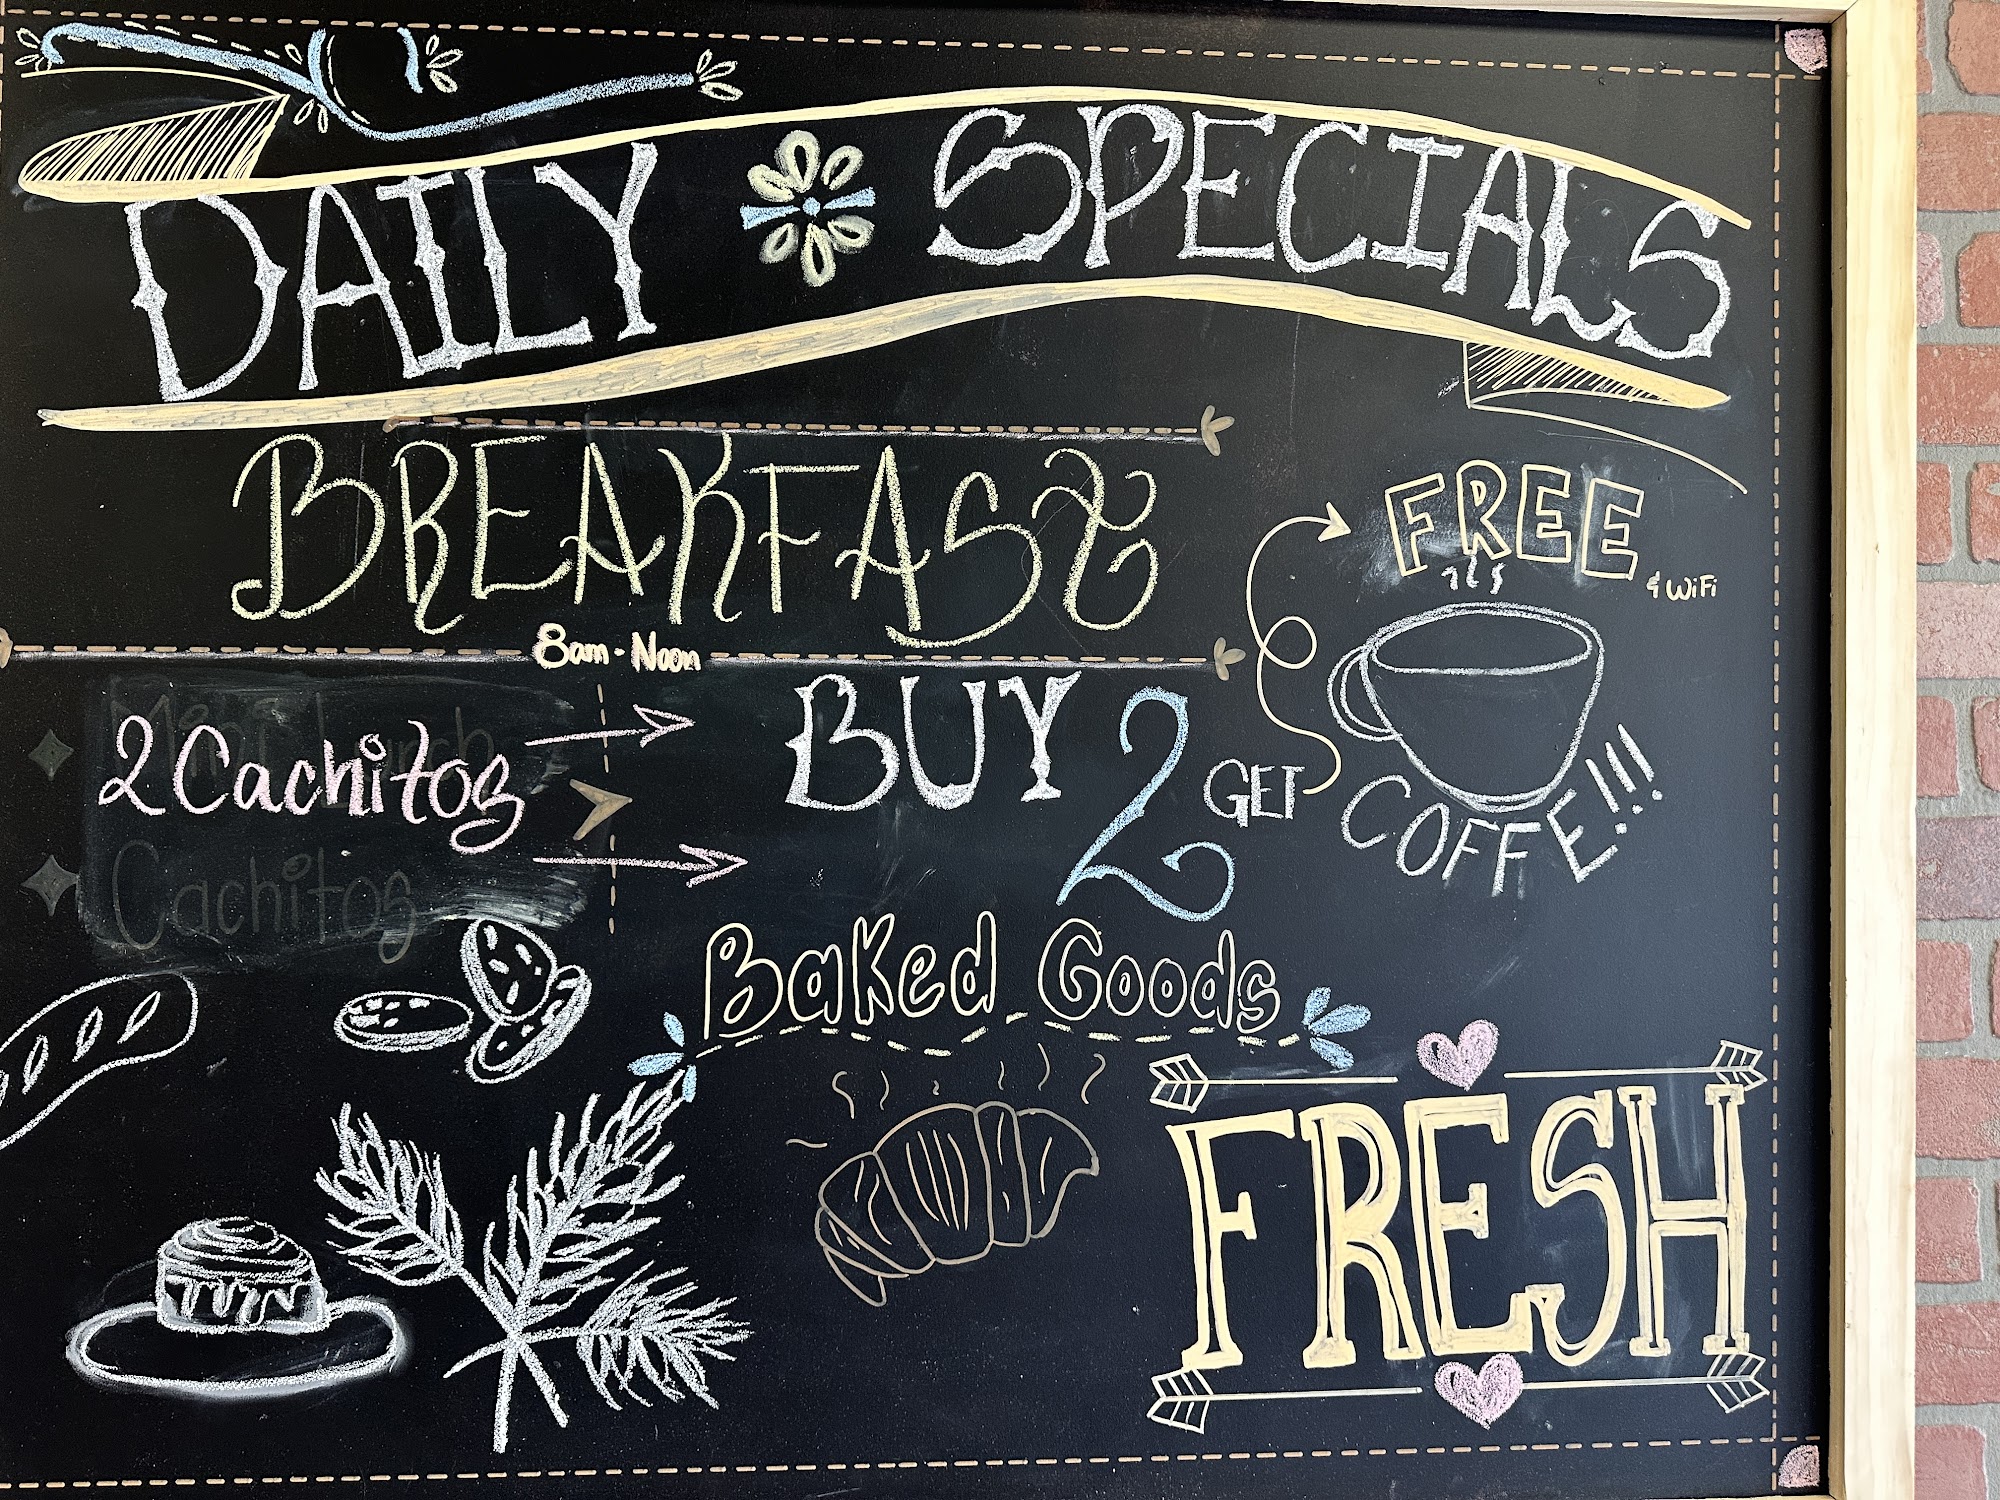 DAILY SPECIALS
BREAKFAST
8am - Noon
FREE
& WiFi
2 Cachitos
BUY 2 GET
COFFE!!!
Cachitos
Baked Goods
FRESH